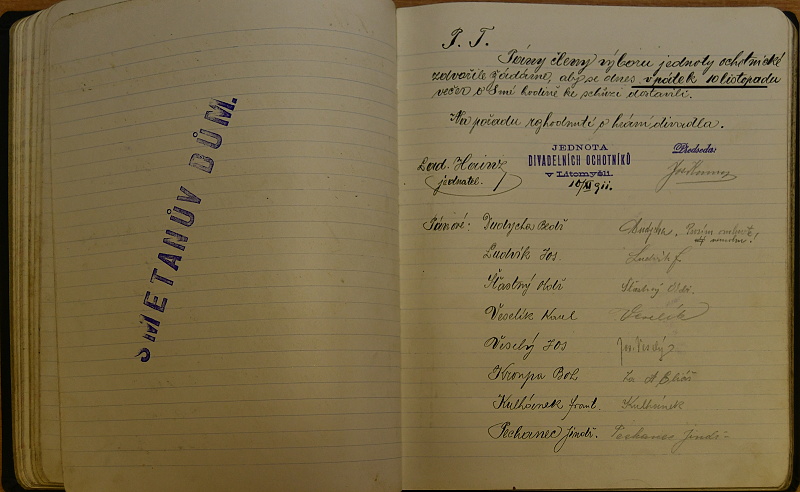 SMETANŮV DŮM.
P. T.
Pány členy výboru jednoty ochotnické
zdvořile žádáme, aby se dnes v pátek 10 listopadu
večer o 8mé hodině ke schůzi dostavili.
Na pořadu rozhodnutí o hraní divadla.
JEDNOTA
DIVADELNÍCH OCHOTNÍKŮ
v Litomyšli.
10/XI 911.
Předseda:
Lad. Heinz
jednatel.
Pánové: Dudycha Bedř Dudycha. Prosím
Ludvík Jos Ludvík J.
Šťastný Oldř Šťastný Oldř.
Veselík Karel Veselík
Veselý Jos Jos. Veselý
Kroupa Boh. za
Kulhánek Frant. Kulhánek
Pechanec Jindř. Pechanec Jindř.